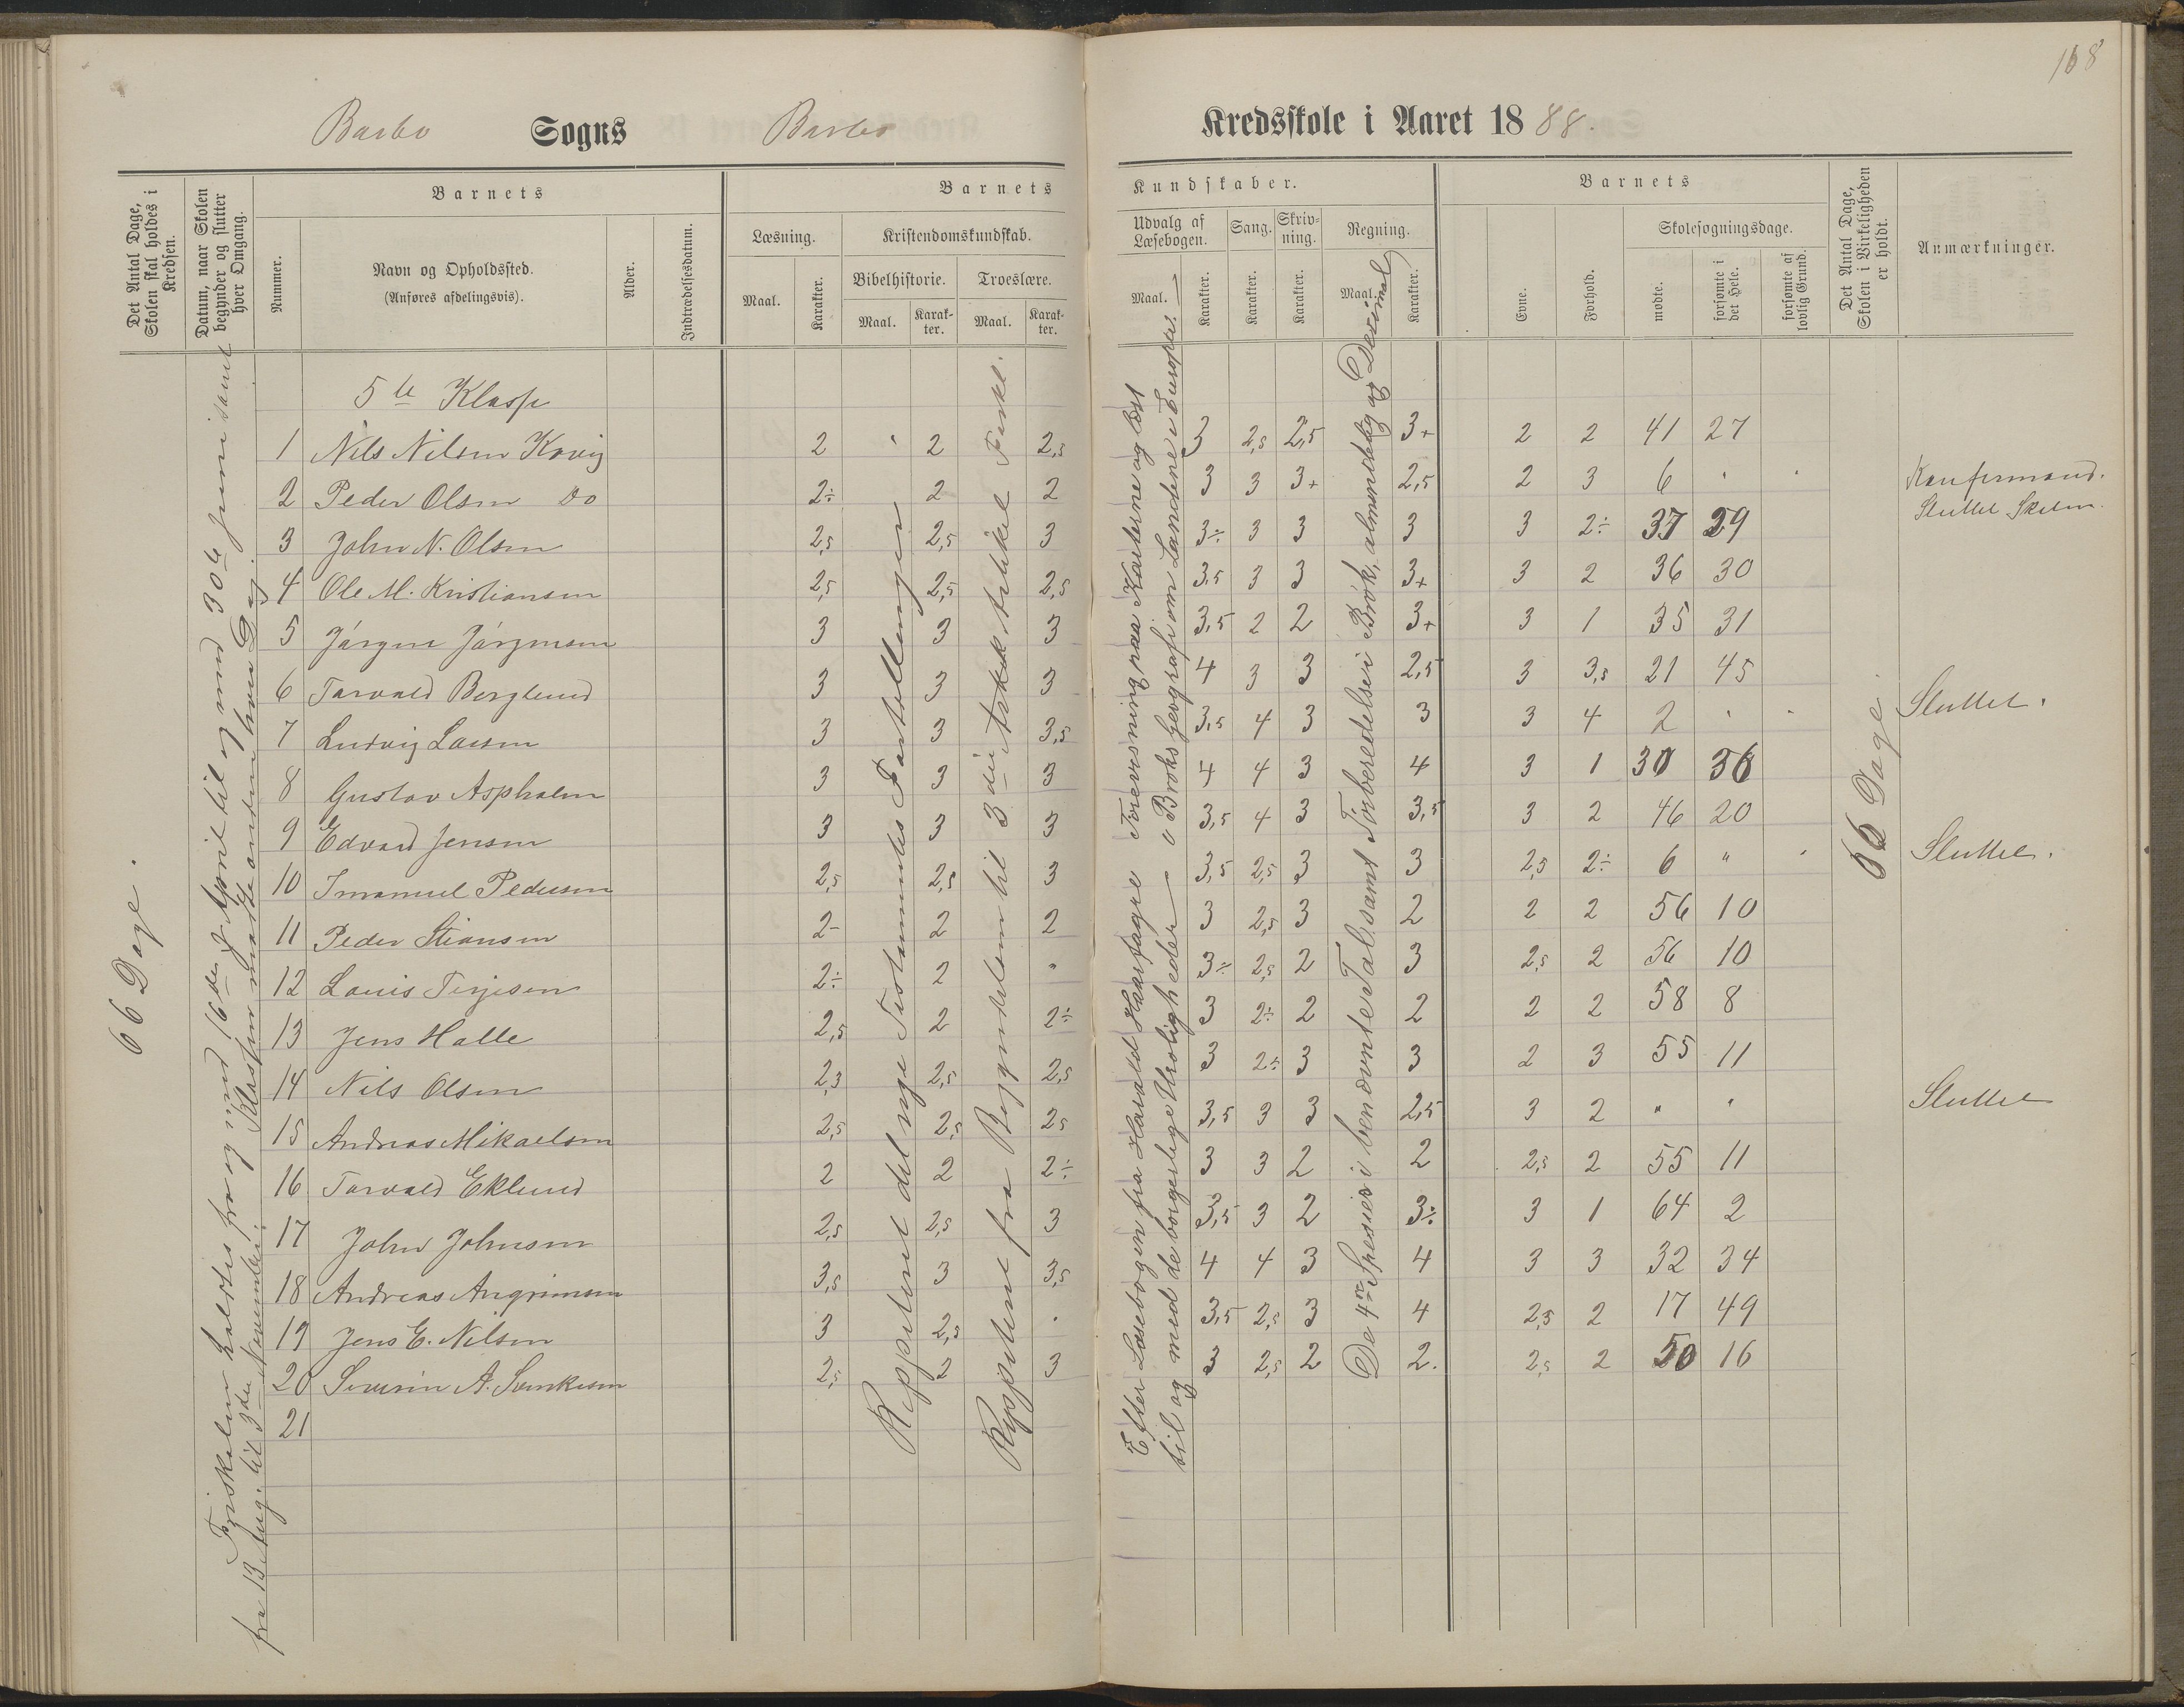 168
Barbo Sogns Barbo Kredsskole i Aaret 1888.
Det Antal Dage, Skolen skal holdes i Kredsen.
Datum, naar Skolen begynder og slutter hver Omgang.
Nummer.
Barnets
Navn og Opholdssted.
(Anføres afdelingsvis).
Alder.
Indtrædelsesdatum.
Barnets
Læsning.
Maal.
Karakter.
Kristendomskundskab.
Bibelhistorie.
Maal.
Karakter.
Troeslære.
Maal.
Karakter.
Kundskaber.
Udvalg af Læsebogen.
Maal.
Karakter.
Sang.
Karakter.
Skrivning.
Karakter.
Regning.
Maal.
Karakter.
Barnets
Evne.
Forhold.
Skolesøgningsdage.
mødte.
forsømte i det Hele.
forsømte af lovlig Grund.
Det Antal Dage, Skolen i Virkeligheden er holdt.
Anmærkninger.
66 Dage.
Friskolen holdtes fra og med 16de April til og med 30te Juni samt
fra 13 Aug. til 3die November. Klassen mødte anden hver Dag.
Reppeteret det nye Testamentes Fortellinger
Reppeteret fra Begyndelsen til 3die Artikel Forkl.
Efter Læsebogen fra Harald Haarfagre Forevisning paa Karterne og læst
til og med de borgerlige Uroligheder i Broks Geografi om Landene i Europa.
De 4re Spesier i benævnte Tal samt Forberedelse i Brøk, almindelig og Desimal
66 Dage.
5te Klasse
1 Nils Nilsen Kovig 2 2 2,5 3 2,5 2,5 3+ 2 2 41 27
2 Peder Olsen Do 2÷ 2 2 3 3 3+ 2,5 2 3 6 " " Konfirmand. Sluttet Skolen
3 John N. Olsen 2,5 2,5 3 3÷ 3 3 3 3 2÷ 37 29
4 Ole M. Kristiansen 2,5 2,5 2,5 3,5 3 3 3+ 3 2 36 30
5 Jørgen Jørgensen 3 3 3 3,5 2 2 3+ 3 1 35 31
6 Torvald Berglund 3 3 3 4 3 3 2,5 3 3,5 21 45
7 Ludvig Lassen 3 3 3,5 3,5 4 3 3 3 4 2 " " Sluttet.
8 Gustav Aspholm 3 3 3 4 4 3 4 3 1 30 36
9 Edvard Jensen 3 3 3 3,5 4 3 3,5 3 2 46 20
10 Imanuel Pedersen 2,5 2,5 3 3,5 2,5 3 3 2,5 2÷ 6 " " Sluttet.
11 Peder Stiansen 2- 2 2 3 2,5 3 2 2 2 56 10
12 Louis Terjesen 2÷ 2 " 3÷ 2,5 2 3 2,5 2 56 10
13 Jens Halle 2,5 2 2÷ 3 2÷ 2 2 2 2 58 8
14 Nils Olsen 2,3 2,5 2,5 3 2÷ 3 3 2 3 55 11
15 Andreas Mikaelsen 2,5 2,5 2,5 3,5 3 3 2,5 3 2 " " Sluttet
16 Torvald Eklund 2 2 2÷ 3 3 2 2 2,5 2 55 11
17 John Johnsen 2,5 2,5 3 3,5 3 2 3÷ 3 1 64 2
18 Andreas Angrimsen 3,5 3 3,5 4 4 3 4 3 3 32 34
19 Jens E. Nilsen 3 2,5 " 3,5 2,5 3 4 2,5 2 17 49
20 Severin A. Svenksen 2,5 2 3 3 2,5 2 2. 2,5 2 50 16
21